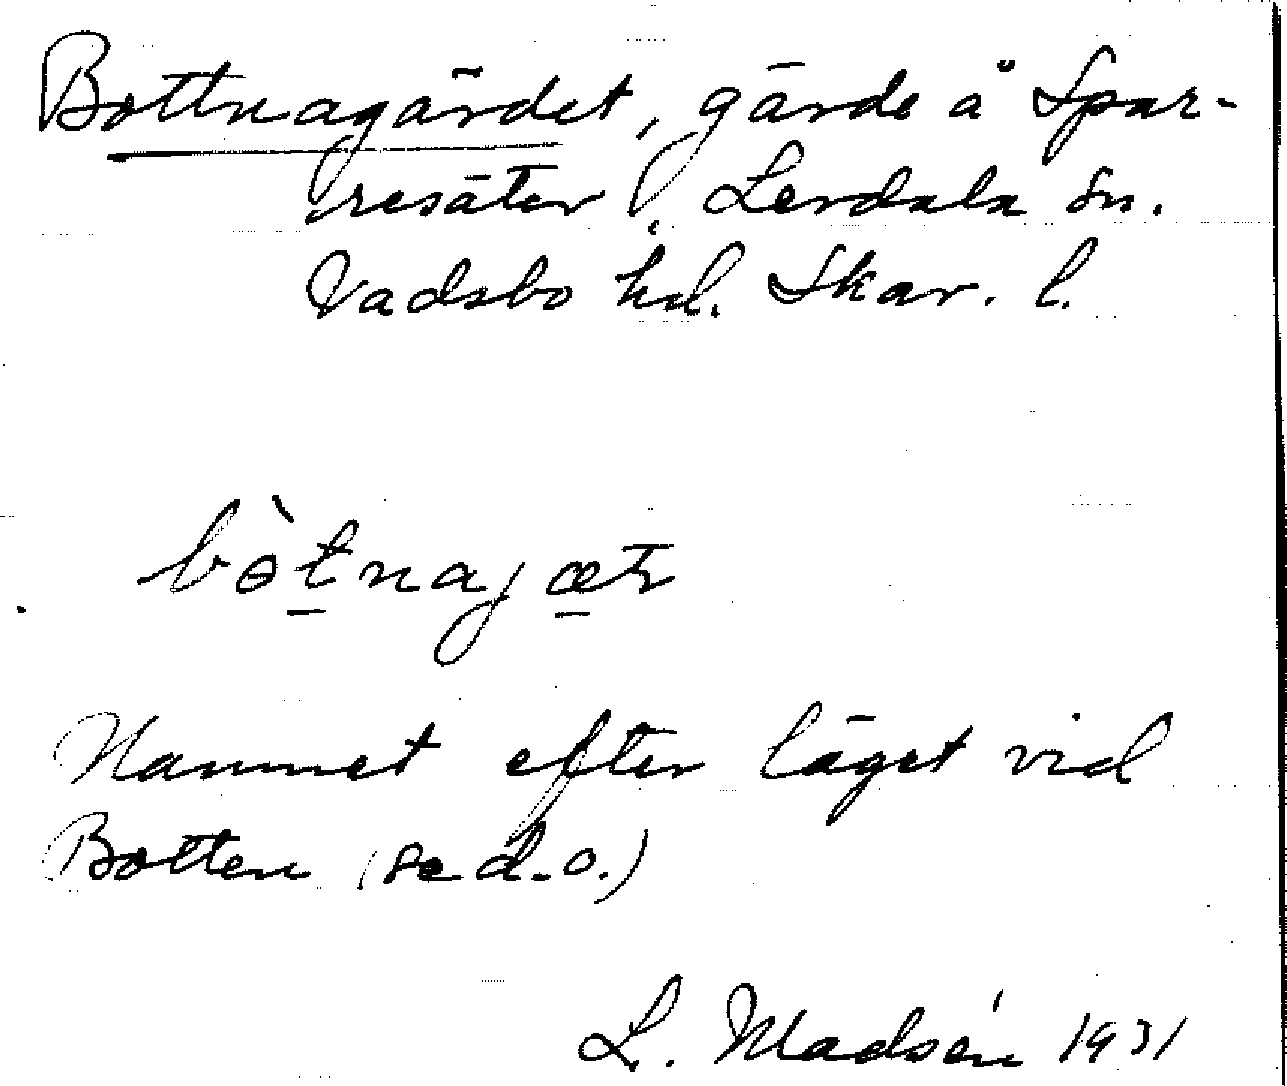 Bottnagärdet, gärde å Spar-
resäter, Lerdala sn.
Vadsbo hd. Skar. l.
bòtnajæṯ
Namnet efter läget vid
Botten (se d. o.)
L. Madsén 1931